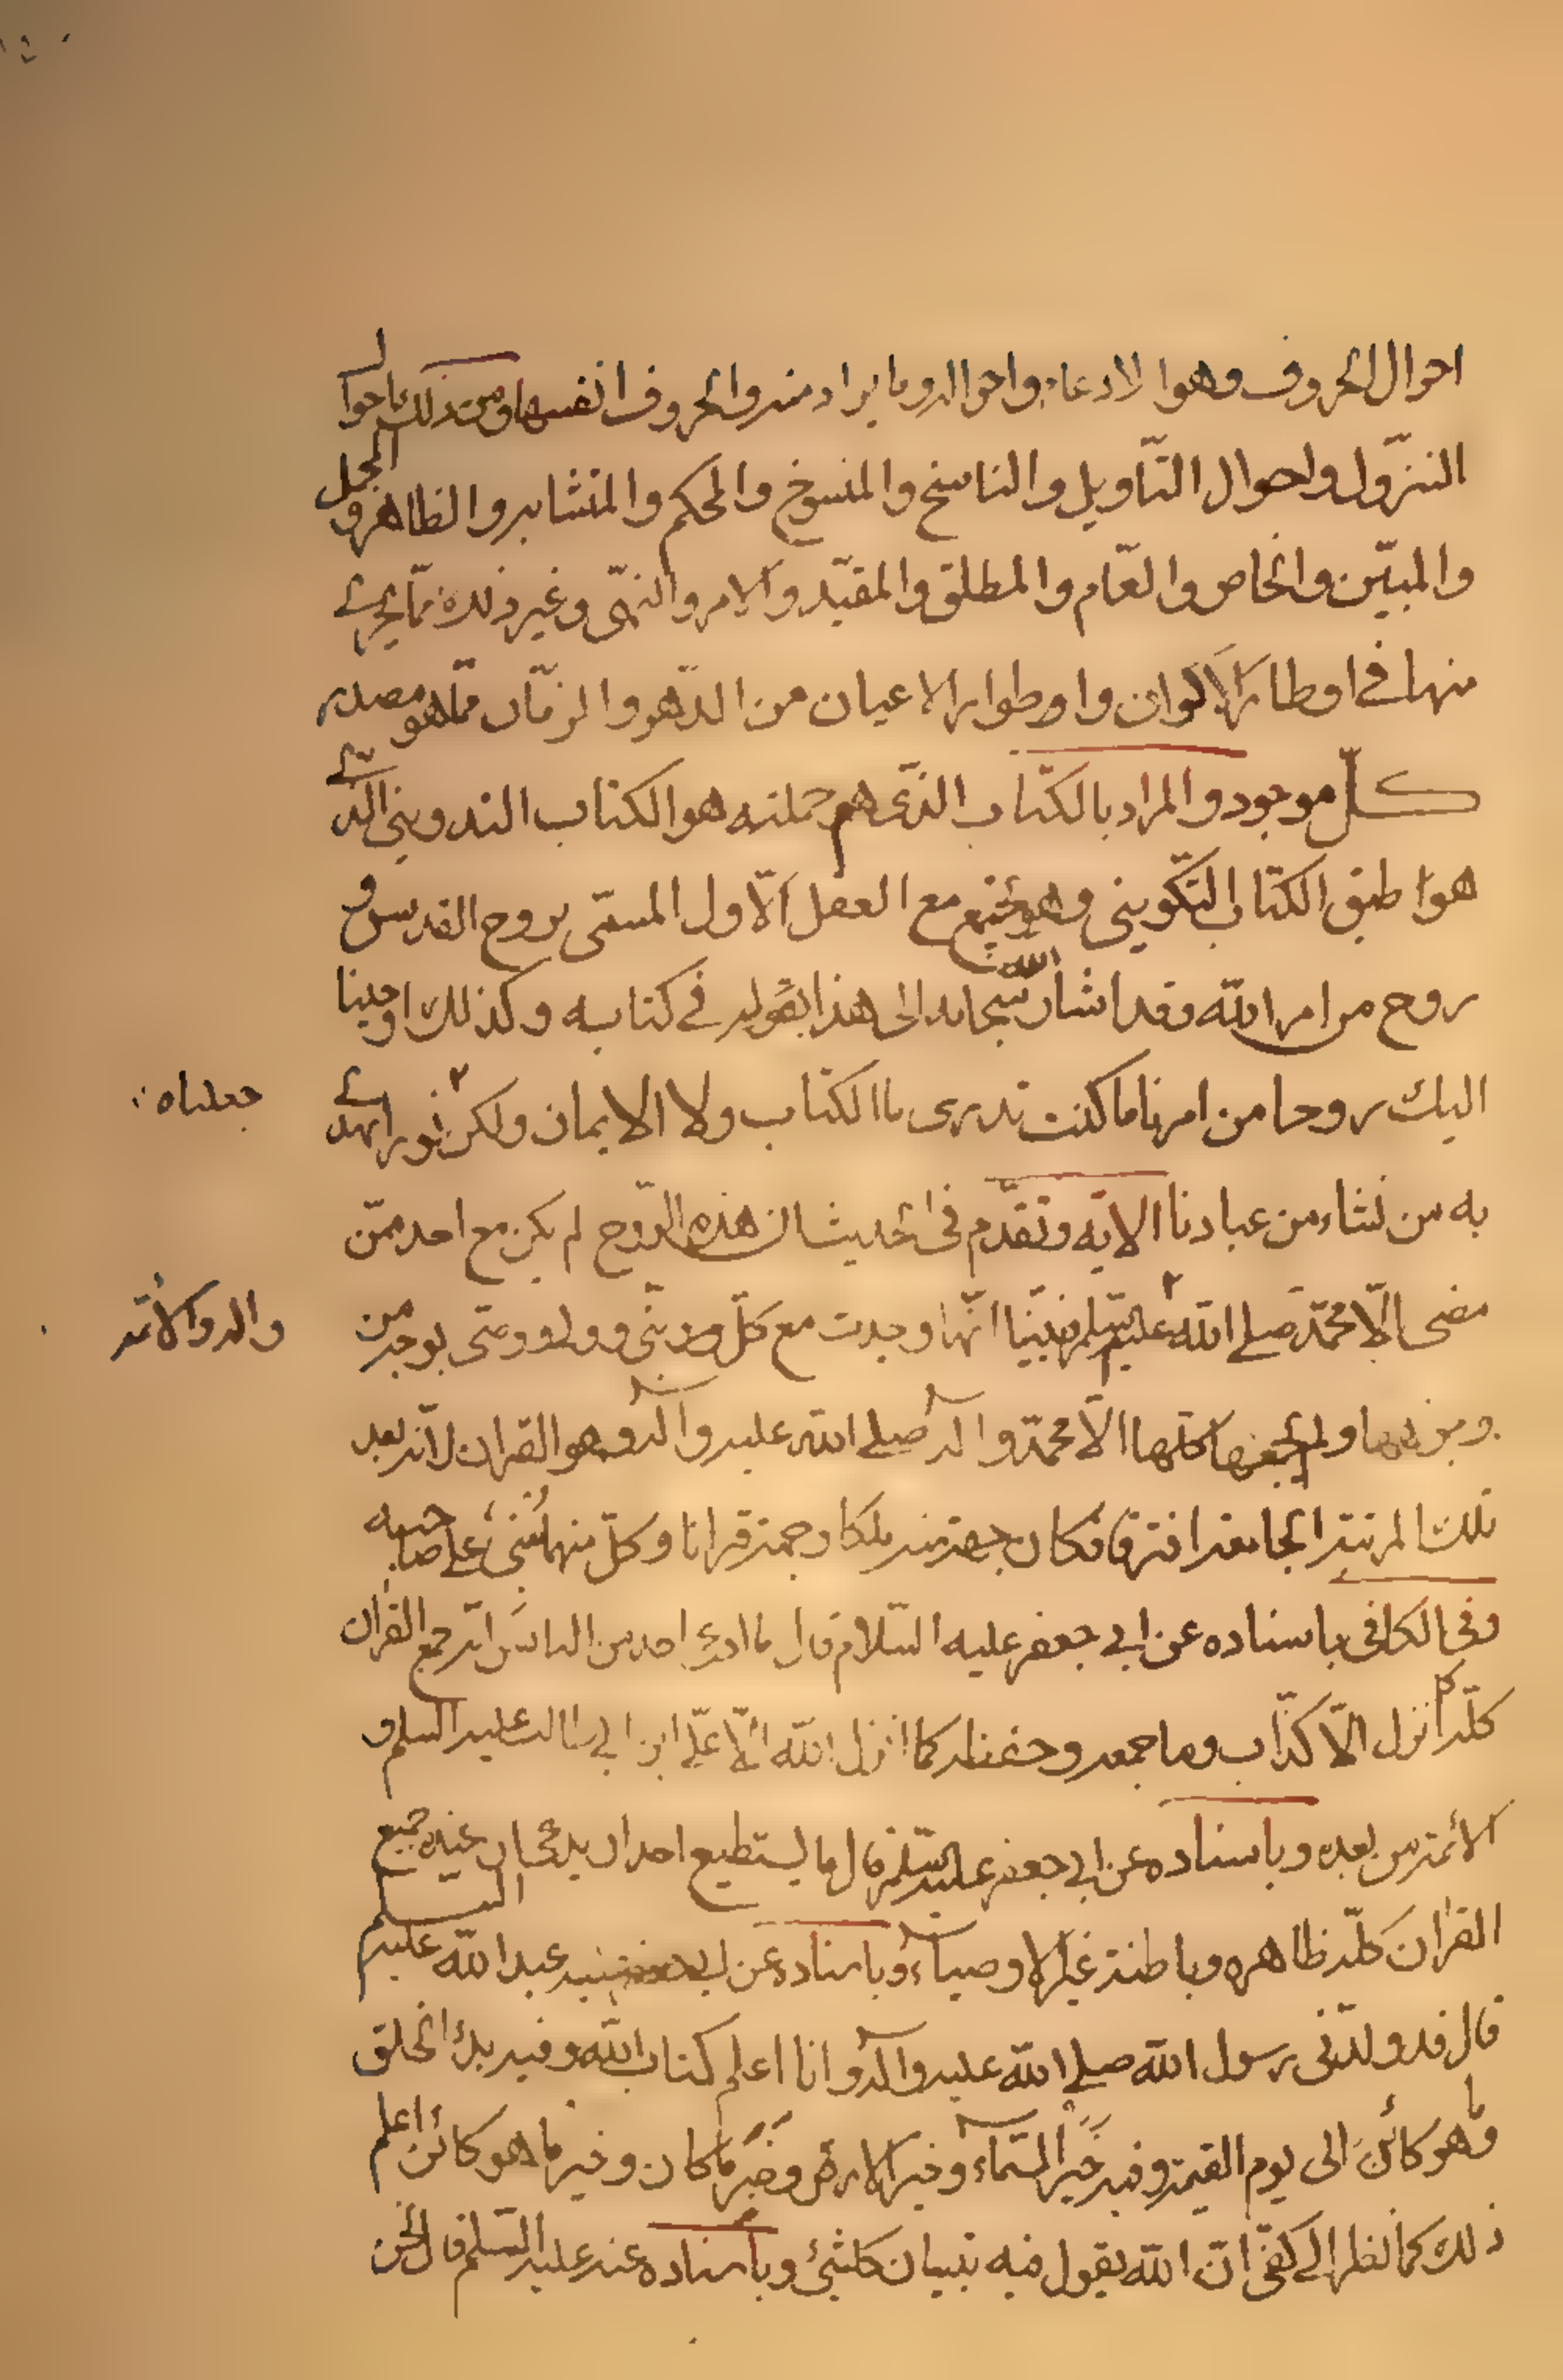 احوال الحروف وهو الادعاء واحواله وما يراد منه والحروف انفسها ومن ذلك احوال
التنزّول واحوال التّاويل والناسخ والمنسوخ والمحكم والمتشابه والظاهر والمجمل
والمبيّن والخاص والعّام والمطلق والمقيّد والامر والنهّى وغير ذلك ممّا يجرى
منها في اوطار الاكوان واوطوار الاعيان من الدّهر والزمّان ممّا هو مصدر
كلّ موجود والمراد بالكتاب الذّى هم حملته هو الكتاب التدوينى الذّى
هو طبق الكتاب التّكوينى وهو مجتمع مع العقل الاّول المسمّى بروح القدس و
روح من امر الله وقد اشار الله سبحانه الى هذا بقوله في كتابه وكذلك اوحينا
اليك روحا من امرنا ما كنت تدرى ما الكتاب ولا الايمان ولكن نورا نهدى
جعلناه
به من نشاء من عبادنا الايه وتقدّم في الحديث ان هذه الرّوح لم يكن مع احد ممّن
مضى الاّ محمّد صلى الله عليه السّلم فبيّنا انّها وجدت مع كلّ نبّى وولى ووصّى بوجه من
واله والائمّه
وجوهها ولم يجمعها كلّها الاّ محمّد واله صلى الله عليه واله وهو القران لانّه بعد
تلك المرتبة الجامعة افترقا فكان جهة منه ملكا وجهة قرانا وكلّ منهما يثنى على صاحبه
وفي الكافى باسناده عن ابى جعفر عليه السّلام قال ما ادعى احد من الناس انّه جمع القران
كلّه كما انزل الاّ كذّاب وما جمعه وحفظه كما انزل الله الاّ علّى ابن ابى طالب عليه السلم و
الائمة من بعده وباسناده عن ابى جعفر عليه السّلم قال ما يستطيع احد ان يدعى ان عنده جميع
القران كلّه ظاهره وباطنه غير الاوصياء وباسناده عن ابى عبد الله عليه السلم
قال قد ولدنى رسول الله صلى الله عليه واله وانا اعلم كتاب الله وفيه بدء الخلق
وما هو كائن الى يوم القيمة وفيه خبر السّماء وخبر الارض وخبر ما كان وخبر ما هو كائن اعلم
ذلك كما انظر الى كفّى انّ الله يقول فيه تبيان كلشئ وباسناده عنه عليه السّلم قال نحن